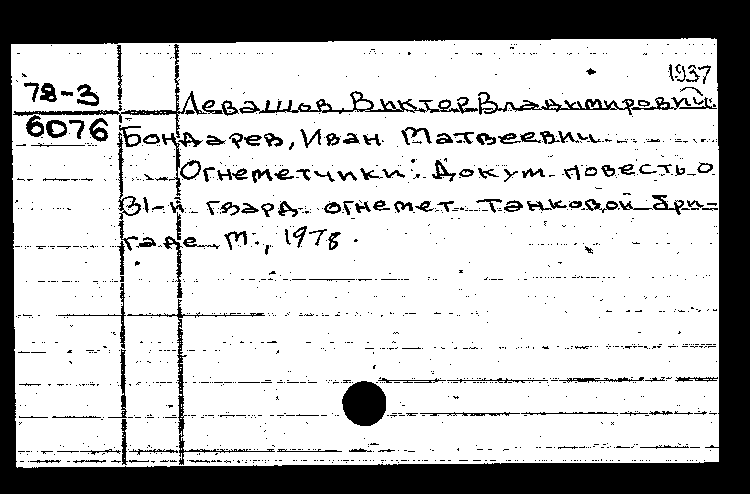 1937
78-3 Левашов, Виктор Владимирович.
6076 Бондарев, Иван Матвеевич
Огнеметчики: Докум. повесть о
31-й гвард. огнемет. танковой бри-
гаде. М., 1978.